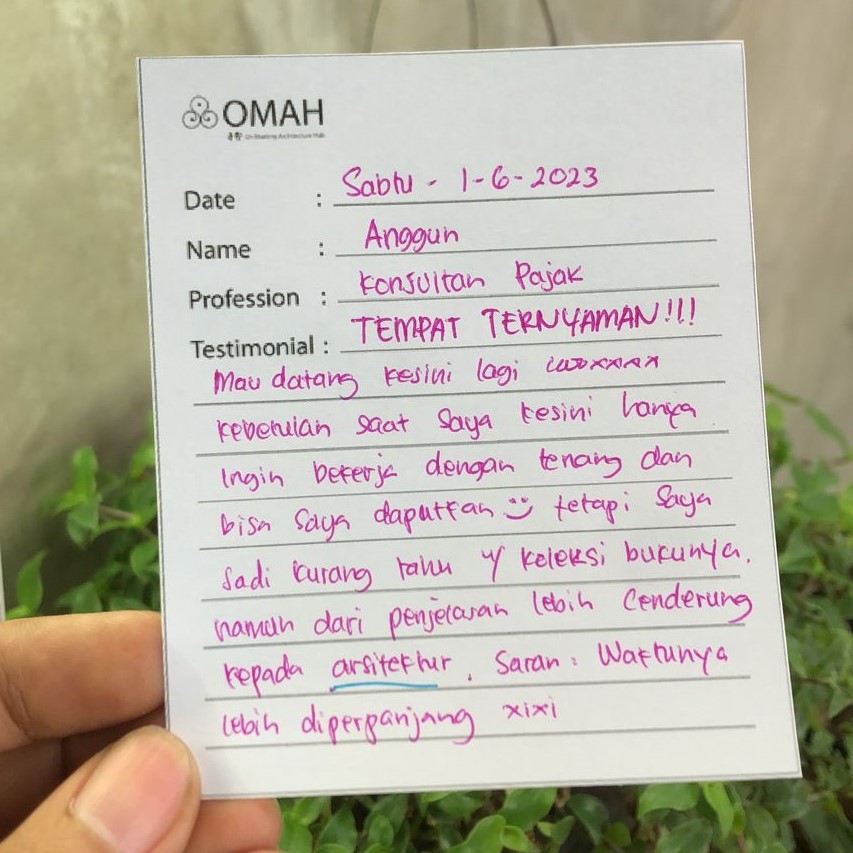 OMAH
Un-Meeting Architecture Hub
Date : Sabtu - 1-6-2023
Name : Anggun
Profession : Konsultan Pajak
Testimonial : TEMPAT TERNYAMAN!!!
Mau datang kesini lagi
kebetulan saat saya kesini hanya
Ingin bekerja dengan tenang dan
bisa saya dapatkan tetapi saya
Jadi kurang tahu y/ koleksi bukunya.
namun dari penjelasan lebih Cenderung
kepada arsitektur. Saran: Waktunya
lebih diperpanjang xixi